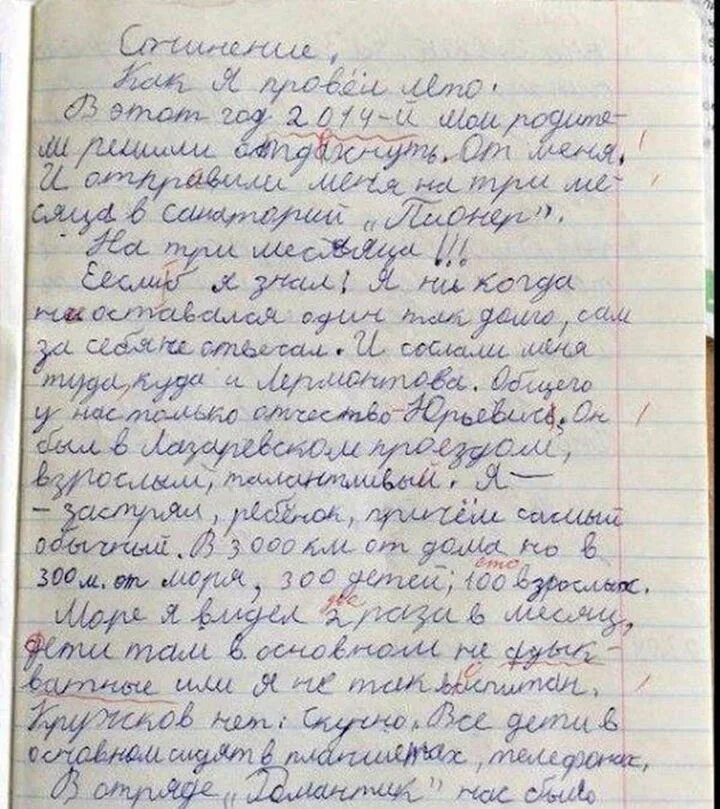 Сочинение.
Как я провёл лето.
В этот год 2014-й мои родите-
ли решили отдохнуть. От меня.
И отправили меня на три ме-
сяца в санаторий „Пионер".
На три месяца!!!
Если б я знал! Я ни когда
не оставался один так долго, сам
за себя не отвечал. И сослали меня
туда, куда и Лермонтова. Общего
у нас только отчество-Юрьевич. Он
был в Лазаревском проездом,
взрослым, талантливый. Я —
- застрял, ребёнок, причём самый
обычный. В 3000 км от дома но в
300 м. от моря, 300 детей; 100 взрослых.
сто
Море я видел 2 раза в месяц,
два
дети там в основном не адык-
ватные или я не так воспитан.
Кружков нет: Скучно. Все дети в
основном сидят в планшетах, телефонах,
В отряде „Романтик" нас было